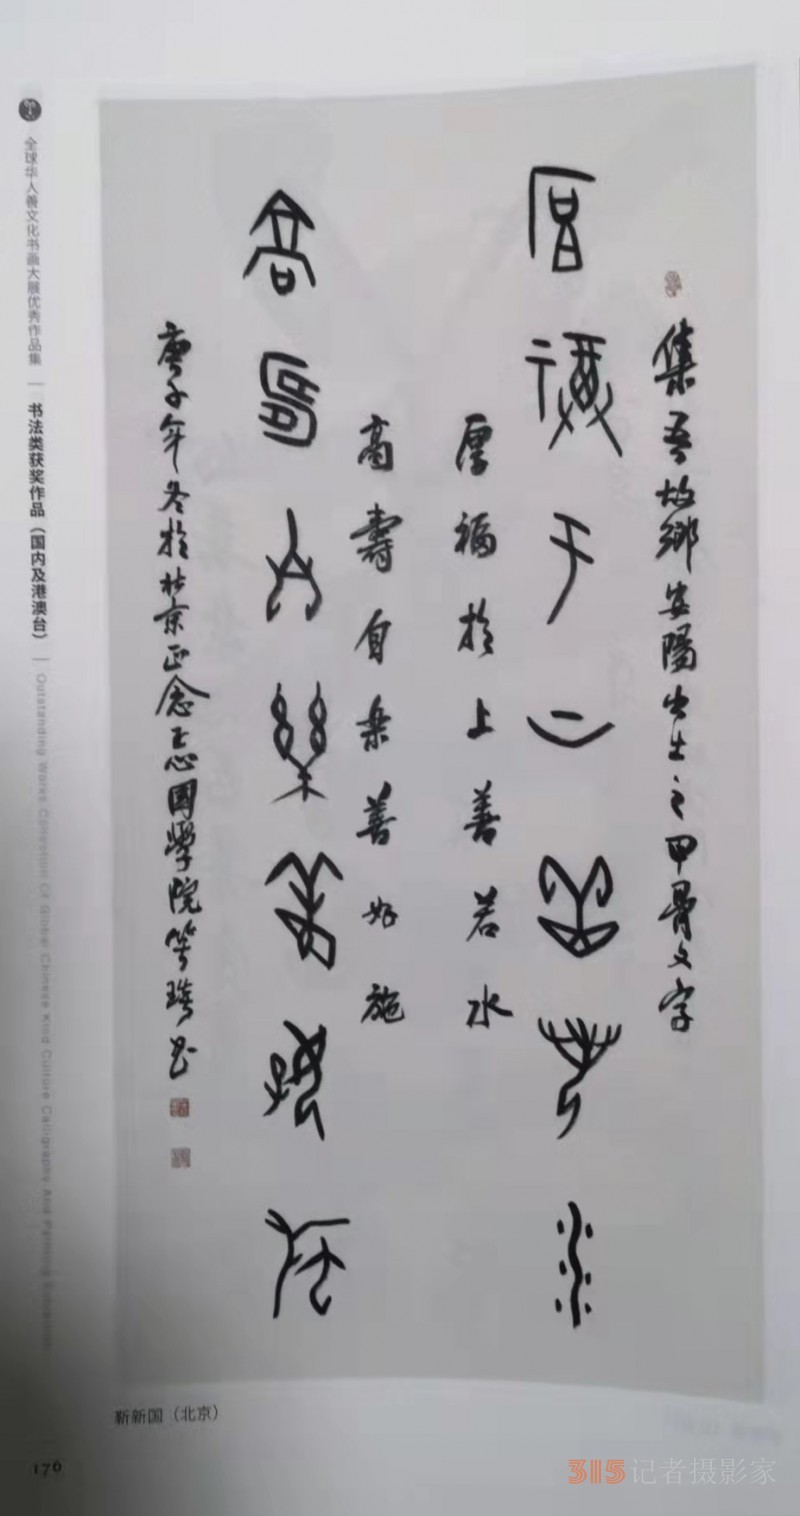 集吾故鄉安陽出土之甲骨文字
厚福于上善若水
厚福於上善若水
高壽自樂善好施
高壽自樂善好施
庚子年冬於北京正念正志國學院
全球华人善文化书画大展优秀作品集 | 书法类获奖作品（国内及港澳台） | Outstanding Works Collection Of Global Chinese Kind Culture Calligraphy And Painting Exhibition
靳新国（北京）
176
315记者摄影家